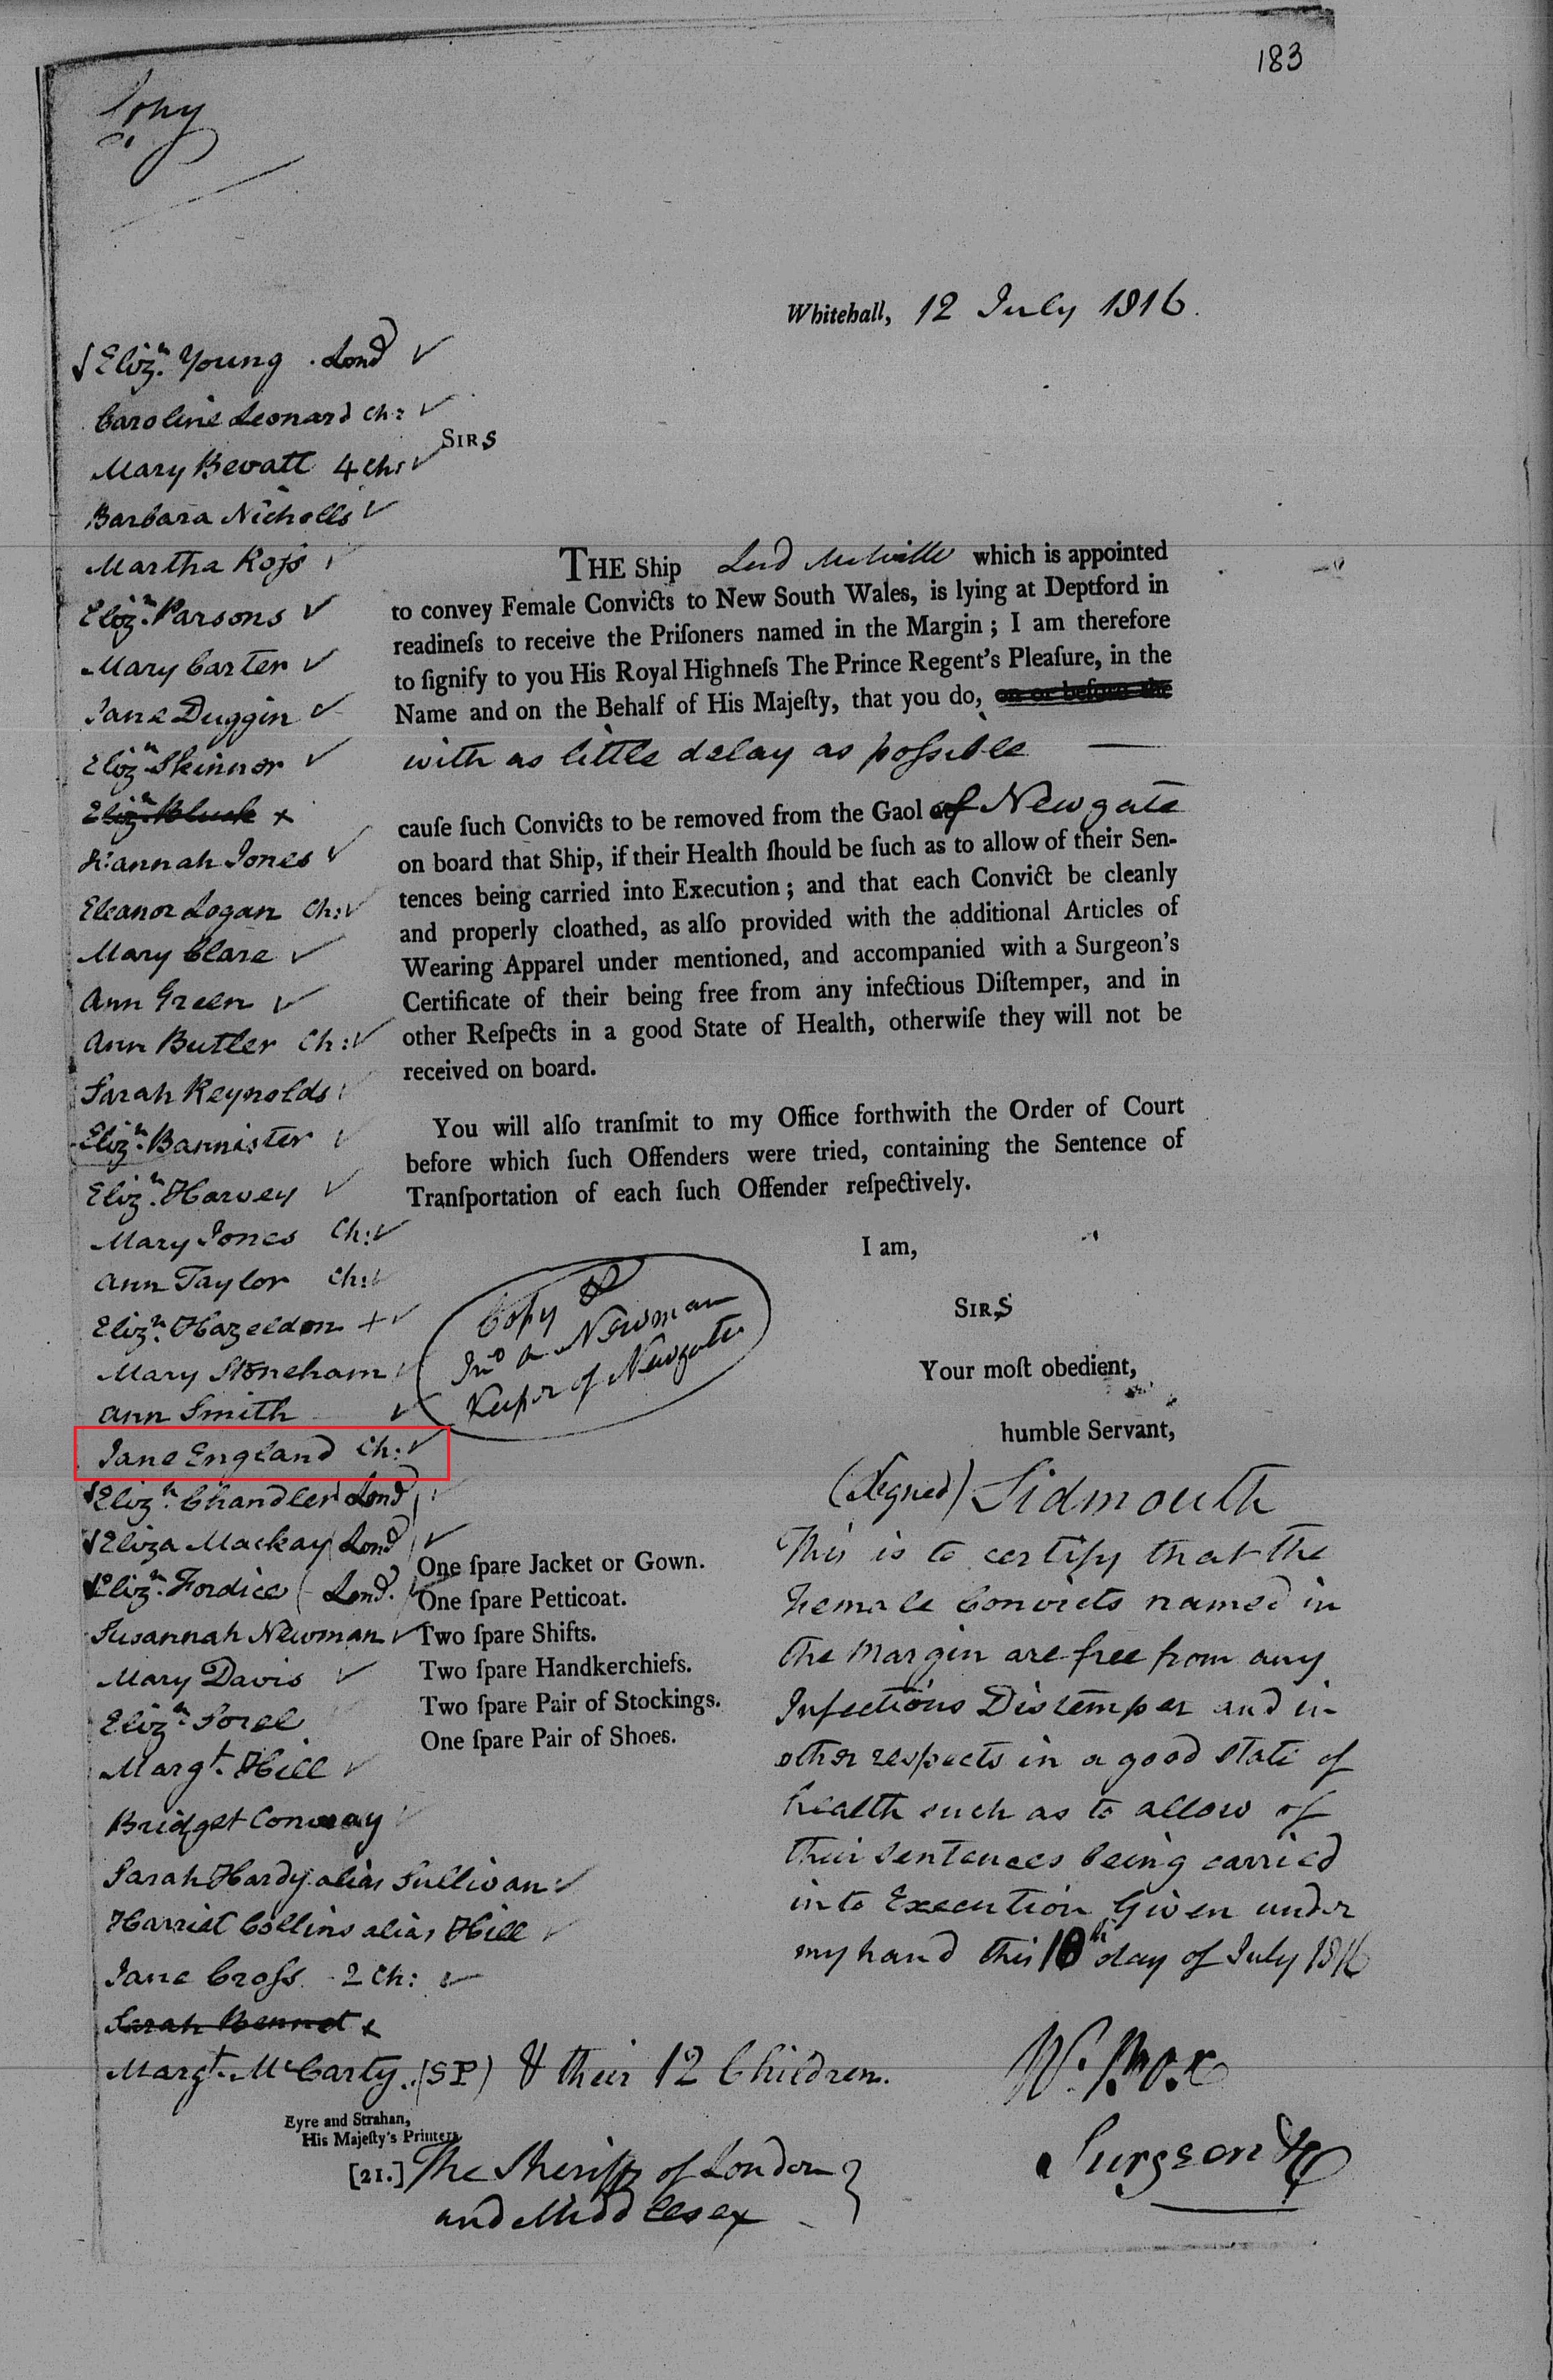 183
Copy
Whitehall, 12 July 1816.
Eliz.h Young . Lond ✓
Caroline Leonard Ch: ✓
SIRS
Mary Bevatt 4 Ch: ✓
Barbara Nicholls ✓
Martha Roſs ✓
Eliz.h Parsons ✓
Mary Carter ✓
Jane Duggin ✓
Eliz.h Skinner ✓
Eliz.h Bluck x
Hannah Jones ✓
Eleanor Logan Ch: ✓
Mary Clare ✓
Ann Green ✓
Ann Butler Ch: ✓
Sarah Reynolds ✓
Eliz.h Bannister ✓
Eliz.h Harvey ✓
Mary Jones Ch: ✓
Ann Taylor Ch: ✓
Eliz.h Hazeldon + ✓
Mary Stoneham ✓
Ann Smith ✓
Jane England Ch: ✓
Eliz.h Chandler Lond ✓
Eliza Mackay (Lond) ✓
Eliz.h Fordice (Lond.) ✓
Susannah Newman ✓
Mary Davis ✓
Eliz.h Sorel
Marg.t Hill ✓
Bridget Conway ✓
Sarah Hardy alias Sullivan ✓
Harriet Collins alias Hill ✓
Jane Croſs 2 Ch: ✓
Sarah Bennet x
Marg.t McCarty. (SP) & their 12 Children.
THE Ship Lord Melville which is appointed
to convey Female Convicts to New South Wales, is lying at Deptford in
readineſs to receive the Priſoners named in the Margin; I am therefore
to ſignify to you His Royal Highneſs The Prince Regent's Pleaſure, in the
Name and on the Behalf of His Majeſty, that you do, on or before the
with as little delay as poſsible —
cauſe ſuch Convicts to be removed from the Gaol of Newgate
on board that Ship, if their Health ſhould be ſuch as to allow of their Sen-
tences being carried into Execution; and that each Convict be cleanly
and properly cloathed, as alſo provided with the additional Articles of
Wearing Apparel under mentioned, and accompanied with a Surgeon's
Certificate of their being free from any infectious Diſtemper, and in
other Reſpects in a good State of Health, otherwiſe they will not be
received on board.
You will alſo tranſmit to my Office forthwith the Order of Court
before which ſuch Offenders were tried, containing the Sentence of
Tranſportation of each ſuch Offender reſpectively.
I am,
SIRS
Your moſt obedient,
humble Servant,
(Signed) Sidmouth
Copy
Jno A Newman
Keeper of Newgate
One ſpare Jacket or Gown.
One ſpare Petticoat.
Two ſpare Shifts.
Two ſpare Handkerchiefs.
Two ſpare Pair of Stockings.
One ſpare Pair of Shoes.
This is to certify that the
Female Convicts named in
the Margin are free from any
Infectious Distemper and in
other respects in a good State of
health such as to allow of
their Sentences being carried
into Execution Given under
my hand this 18th day of July 1816
W. Box
Surgeon &c
Eyre and Strahan,
His Majeſty's Printers
[21.]
The Sheriffs of London }
and Middlesex